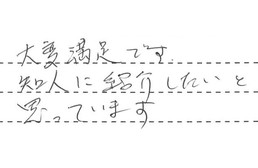 大変満足です.
知人に紹介したいと
思っています